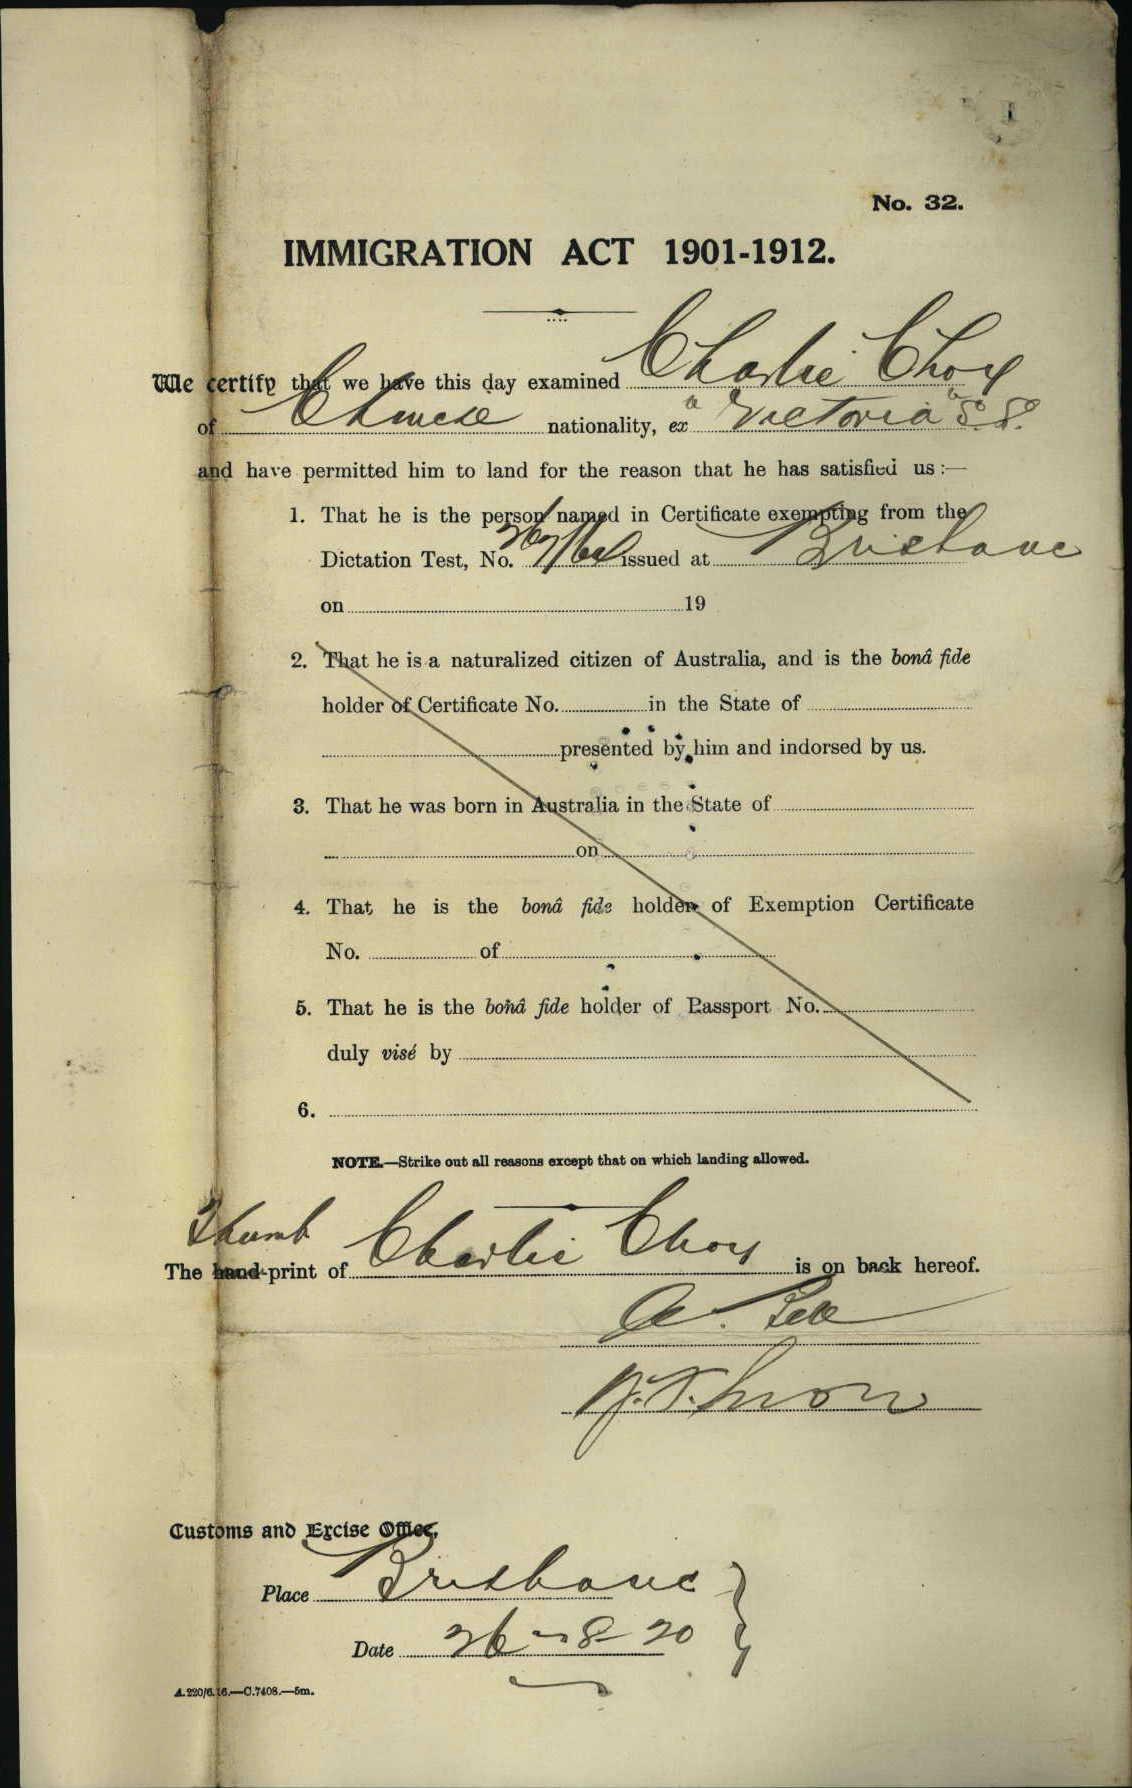 No. 32.
IMMIGRATION ACT 1901-1912.
We certify that we have this day examined Charlie Choy
of Chinese nationality, ex "Victoria" S.S.
and have permitted him to land for the reason that he has satisfied us :—
1. That he is the person named in Certificate exempting from the
Dictation Test, No. issued at Brisbane
on 19
2. That he is a naturalized citizen of Australia, and is the bonâ fide
holder of Certificate No. in the State of
presented by him and indorsed by us.
3. That he was born in Australia in the State of
on
4. That he is the bonâ fide holder of Exemption Certificate
No. of
5. That he is the bonâ fide holder of Passport No.
duly visé by
6.
NOTE.—Strike out all reasons except that on which landing allowed.
Thumb
The hand-print of Charlie Choy is on back hereof.
Customs and Excise Office,
Place Brisbane
Date 26-8-20
A.220/6.16.—C.7408.—5m.